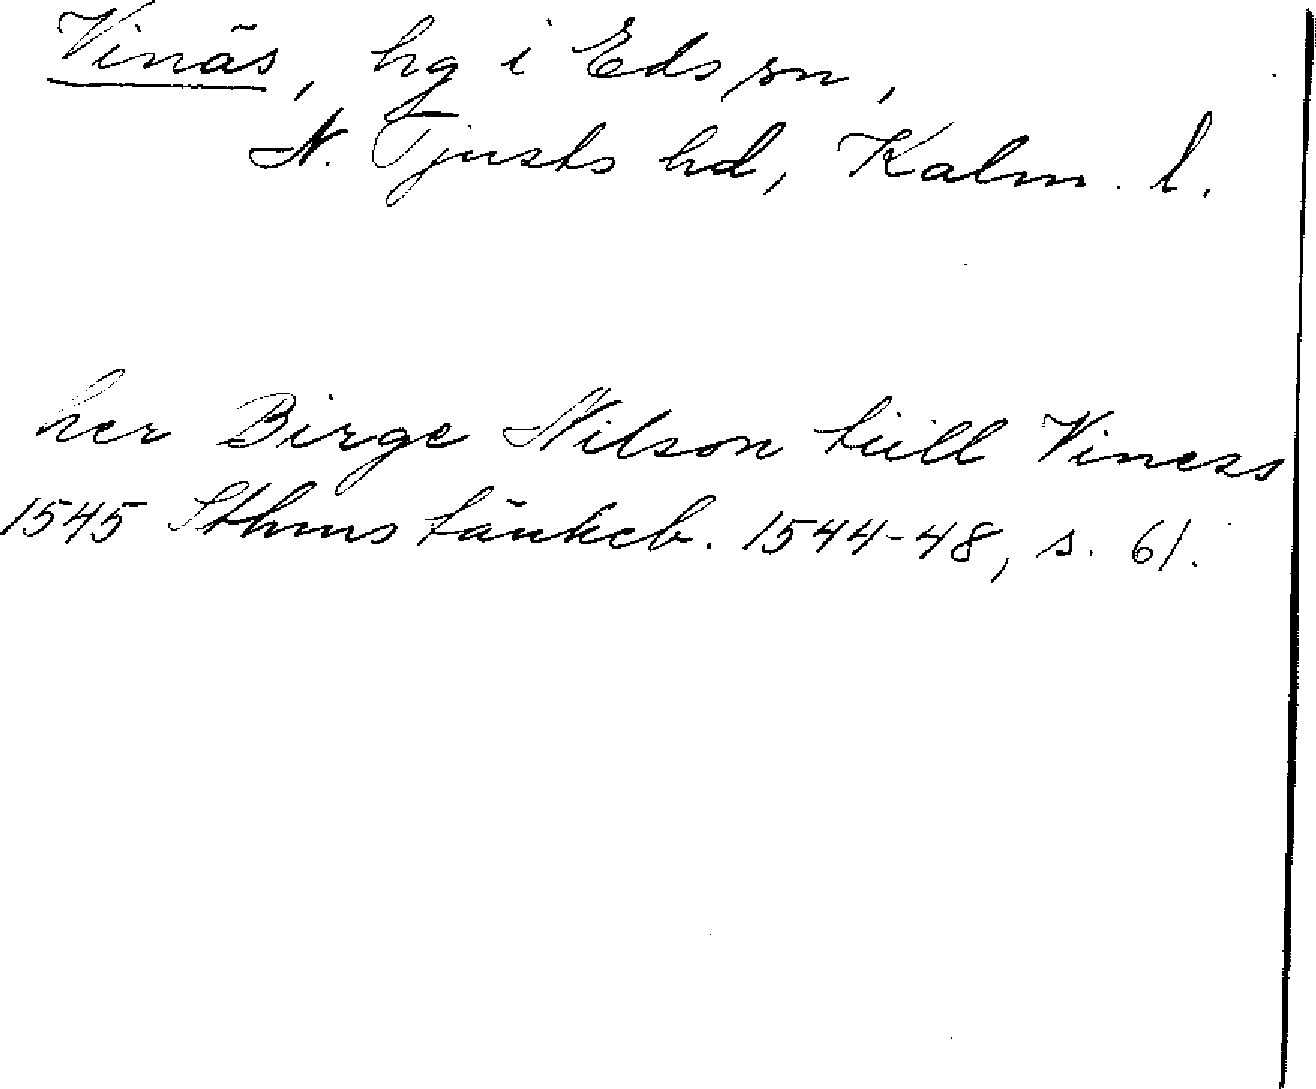 Vinäs, hg i Eds sn,
N. Tjusts hd, Kalm. l.
her Birge Nilson tiill Viness
1545 Sthms tänkeb. 1544-48, s. 61.